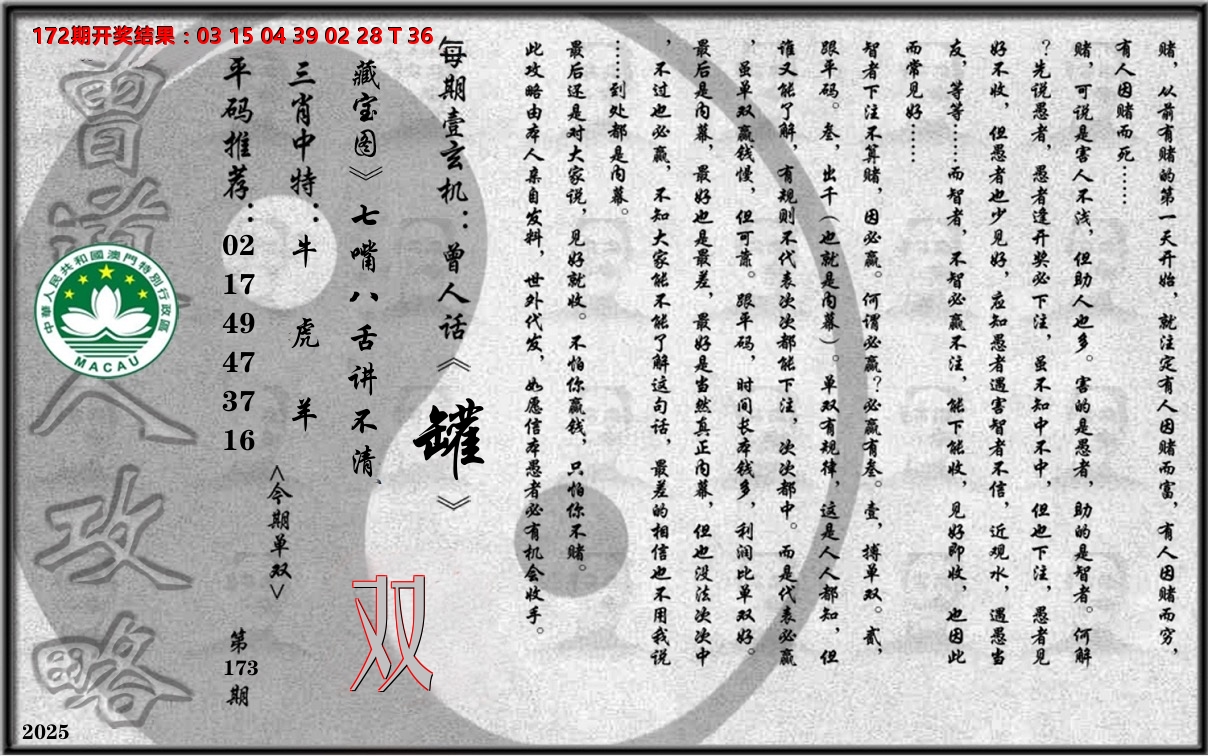 172期开奖结果：03 15 04 39 02 28 T 36
赌，从前有赌的第一天开始，就注定有人因赌而富，有人因赌而穷，
有人因赌而死……
赌，可说是害人不浅，但助人也多。害的是愚者，助的是智者。何解
？先说愚者，愚者逢开奖必下注，虽不知中不中，但也下注，愚者见
好不收，但愚者也少见好，应知愚者遇害智者不信，近观水，遇愚当
友，等等……而智者，不智必赢不注，能下能收，见好即收，也因此
而常见好……
智者下注不算赌，因必赢。何谓必赢？必赢有叁。壹，搏单双。贰，
跟平码。叁，出千（也就是内幕）。单双有规律，这是人人都知，但
谁又能了解，有规则不代表次次都能下注，次次都中。而是代表必赢
，虽单双赢钱慢，但可靠。跟平码，时间长本钱多，利润比单双好。
最后是内幕，最好也是最差，最好是当然真正内幕，但也没法次次中
，不过也必赢，不知大家能不能了解这句话，最差的相信也不用我说
……到处都是内幕。
最后还是对大家说，见好就收。不怕你赢钱，只怕你不赌。
此攻略由本人亲自发料，世外代发，如愿信本愚者必有机会收手。
每期壹玄机：曾人话《罐》
藏宝图》七嘴八舌讲不清、
双
三肖中特：牛 虎 羊
<今期单双>
平码推荐：02 17 49 47 37 16
第173期
曾道人攻略
中華人民共和國澳門特別行政區
MACAU
2025